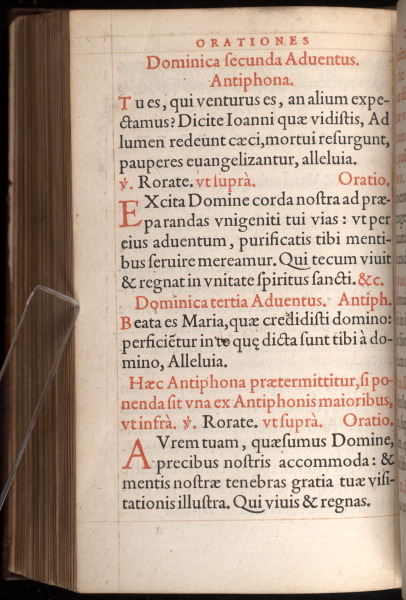 ORATIONES
Dominica ſecunda Aduentus.
Antiphona.
Tu es, qui venturus es, an alium expe-
ctamus? Dicite Ioanni quæ vidiſtis, Ad
lumen redeunt cæci, mortui reſurgunt,
pauperes euangelizantur, alleluia.
℣. Rorate. vt ſuprà. Oratio.
EXcita Domine corda noſtra ad præ-
parandas vnigeniti tui vias: vt per
eius aduentum, purificatis tibi menti-
bus ſeruire mereamur. Qui tecum viuit
& regnat in vnitate ſpiritus ſancti. &c.
Dominica tertia Aduentus. Antiph.
Beata es Maria, quæ credidiſti domino:
perficiẽtur in te quę dicta ſunt tibi à do-
mino, Alleluia.
Hæc Antiphona prætermittitur, ſi po-
nenda ſit vna ex Antiphonis maioribus,
vt infrà. ℣. Rorate. vt ſuprà. Oratio.
AVrem tuam, quæſumus Domine,
precibus noſtris accommoda: &
mentis noſtræ tenebras gratia tuæ viſi-
tationis illuſtra. Qui viuis & regnas.